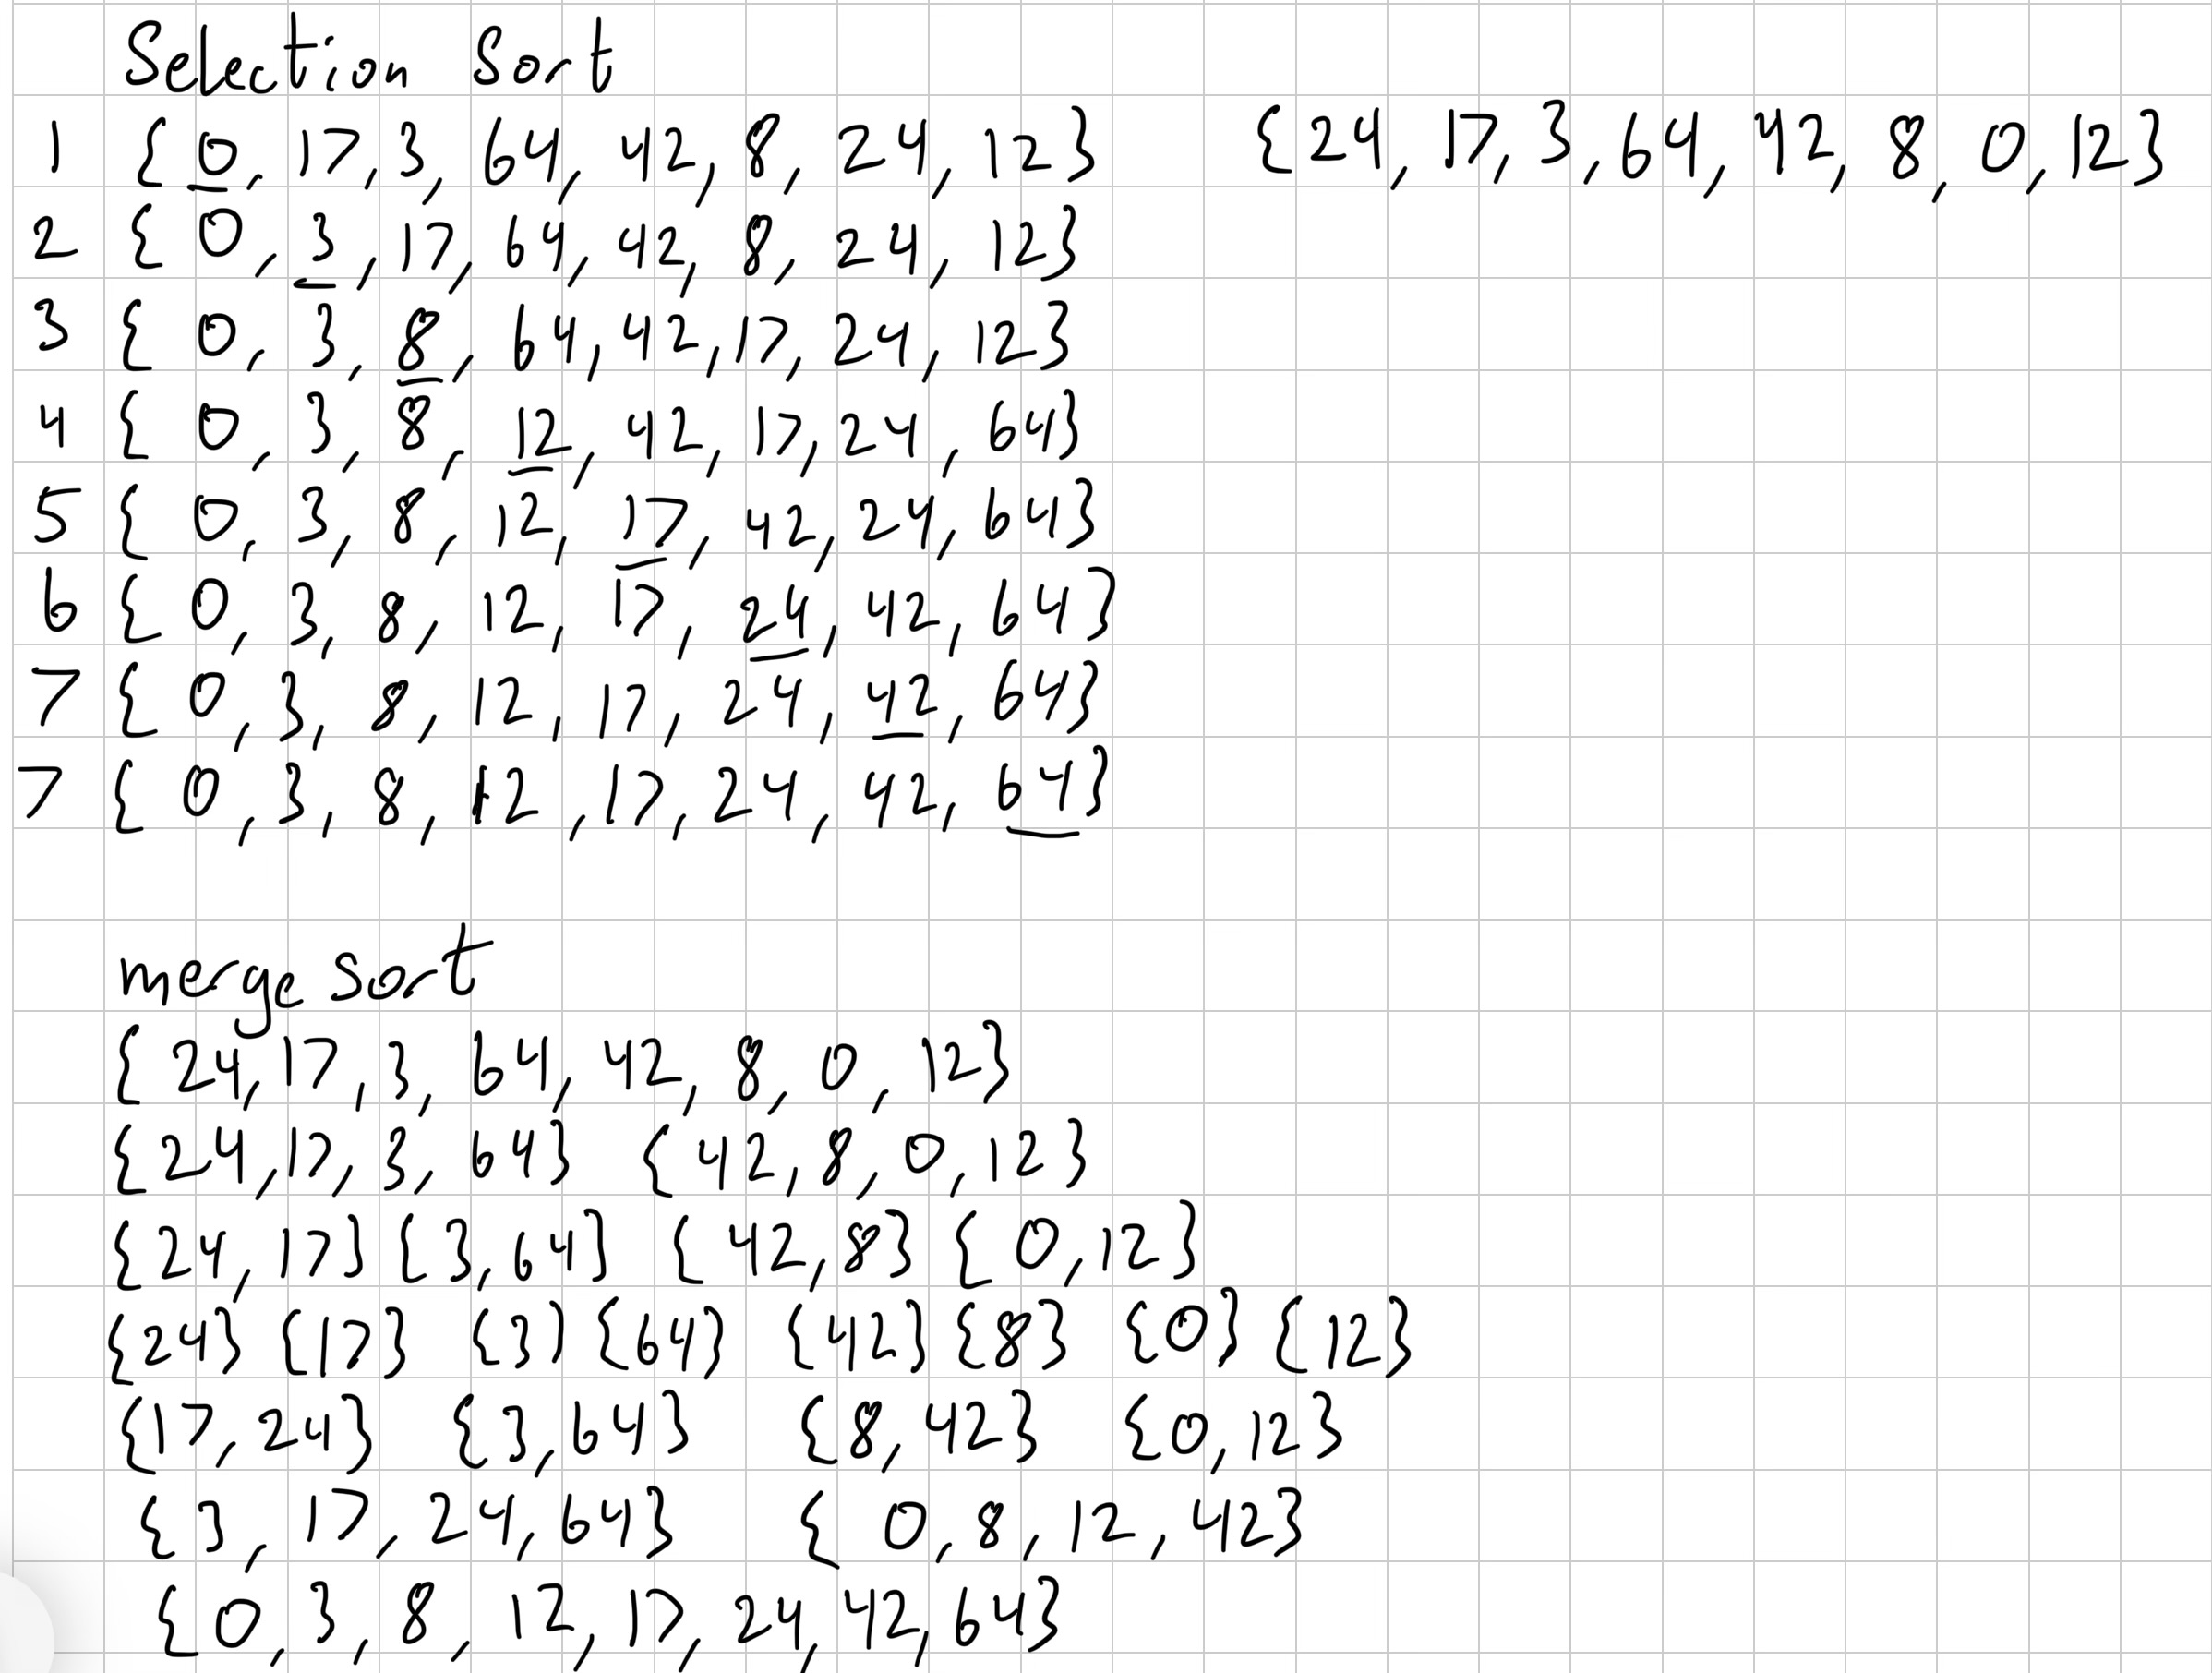 Selection Sort
1 {0, 17, 3, 64, 42, 8, 24, 12} {24, 17, 3, 64, 42, 8, 0, 12}
2 {0, 3, 17, 64, 42, 8, 24, 12}
3 {0, 3, 8, 64, 42, 17, 24, 12}
4 {0, 3, 8, 12, 42, 17, 24, 64}
5 {0, 3, 8, 12, 17, 42, 24, 64}
6 {0, 3, 8, 12, 17, 24, 42, 64}
7 {0, 3, 8, 12, 17, 24, 42, 64}
7 {0, 3, 8, 12, 17, 24, 42, 64}
merge sort
{24, 17, 3, 64, 42, 8, 0, 12}
{24, 17, 3, 64} {42, 8, 0, 12}
{24, 17} {3, 64} {42, 8} {0, 12}
{24} {17} {3} {64} {42} {8} {0} {12}
{17, 24} {3, 64} {8, 42} {0, 12}
{3, 17, 24, 64} {0, 8, 12, 42}
{0, 3, 8, 12, 17, 24, 42, 64}